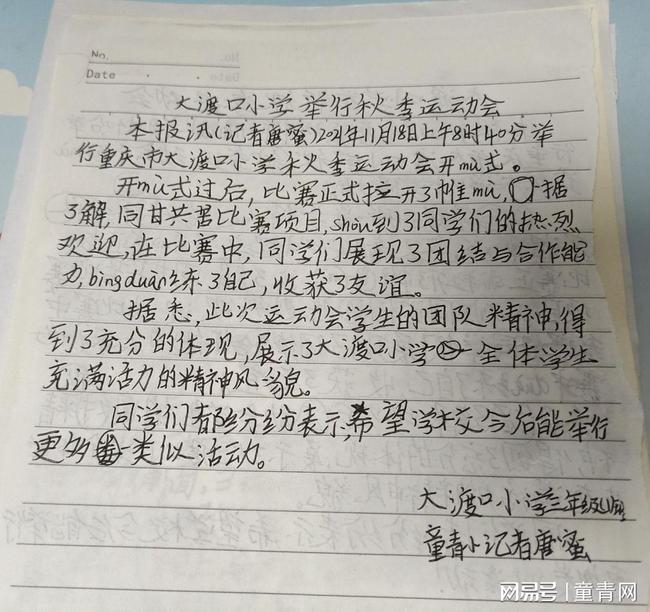 No.
Date
大渡口小学举行秋季运动会
本报讯(记者唐蜜)2021年11月18日上午8时40分举
行重庆市大渡口小学秋季运动会开mù式。
开mù式过后,比赛正式拉开了帷mù,据
了解,同甘共苦比赛项目,shòu到了同学们的热烈
欢迎,在比赛中,同学们展现了团结与合作能
力,bìngduàn炼了自己,收获了友谊。
据悉,此次运动会学生的团队精神,得
到了充分的体现,展示了大渡口小学全体学生
充满活力的精神风貌。
同学们都纷纷表示,希望学校今后能举行
更多类似活动。
大渡口小学三年级
童青小记者唐蜜
网易号 | 童青网